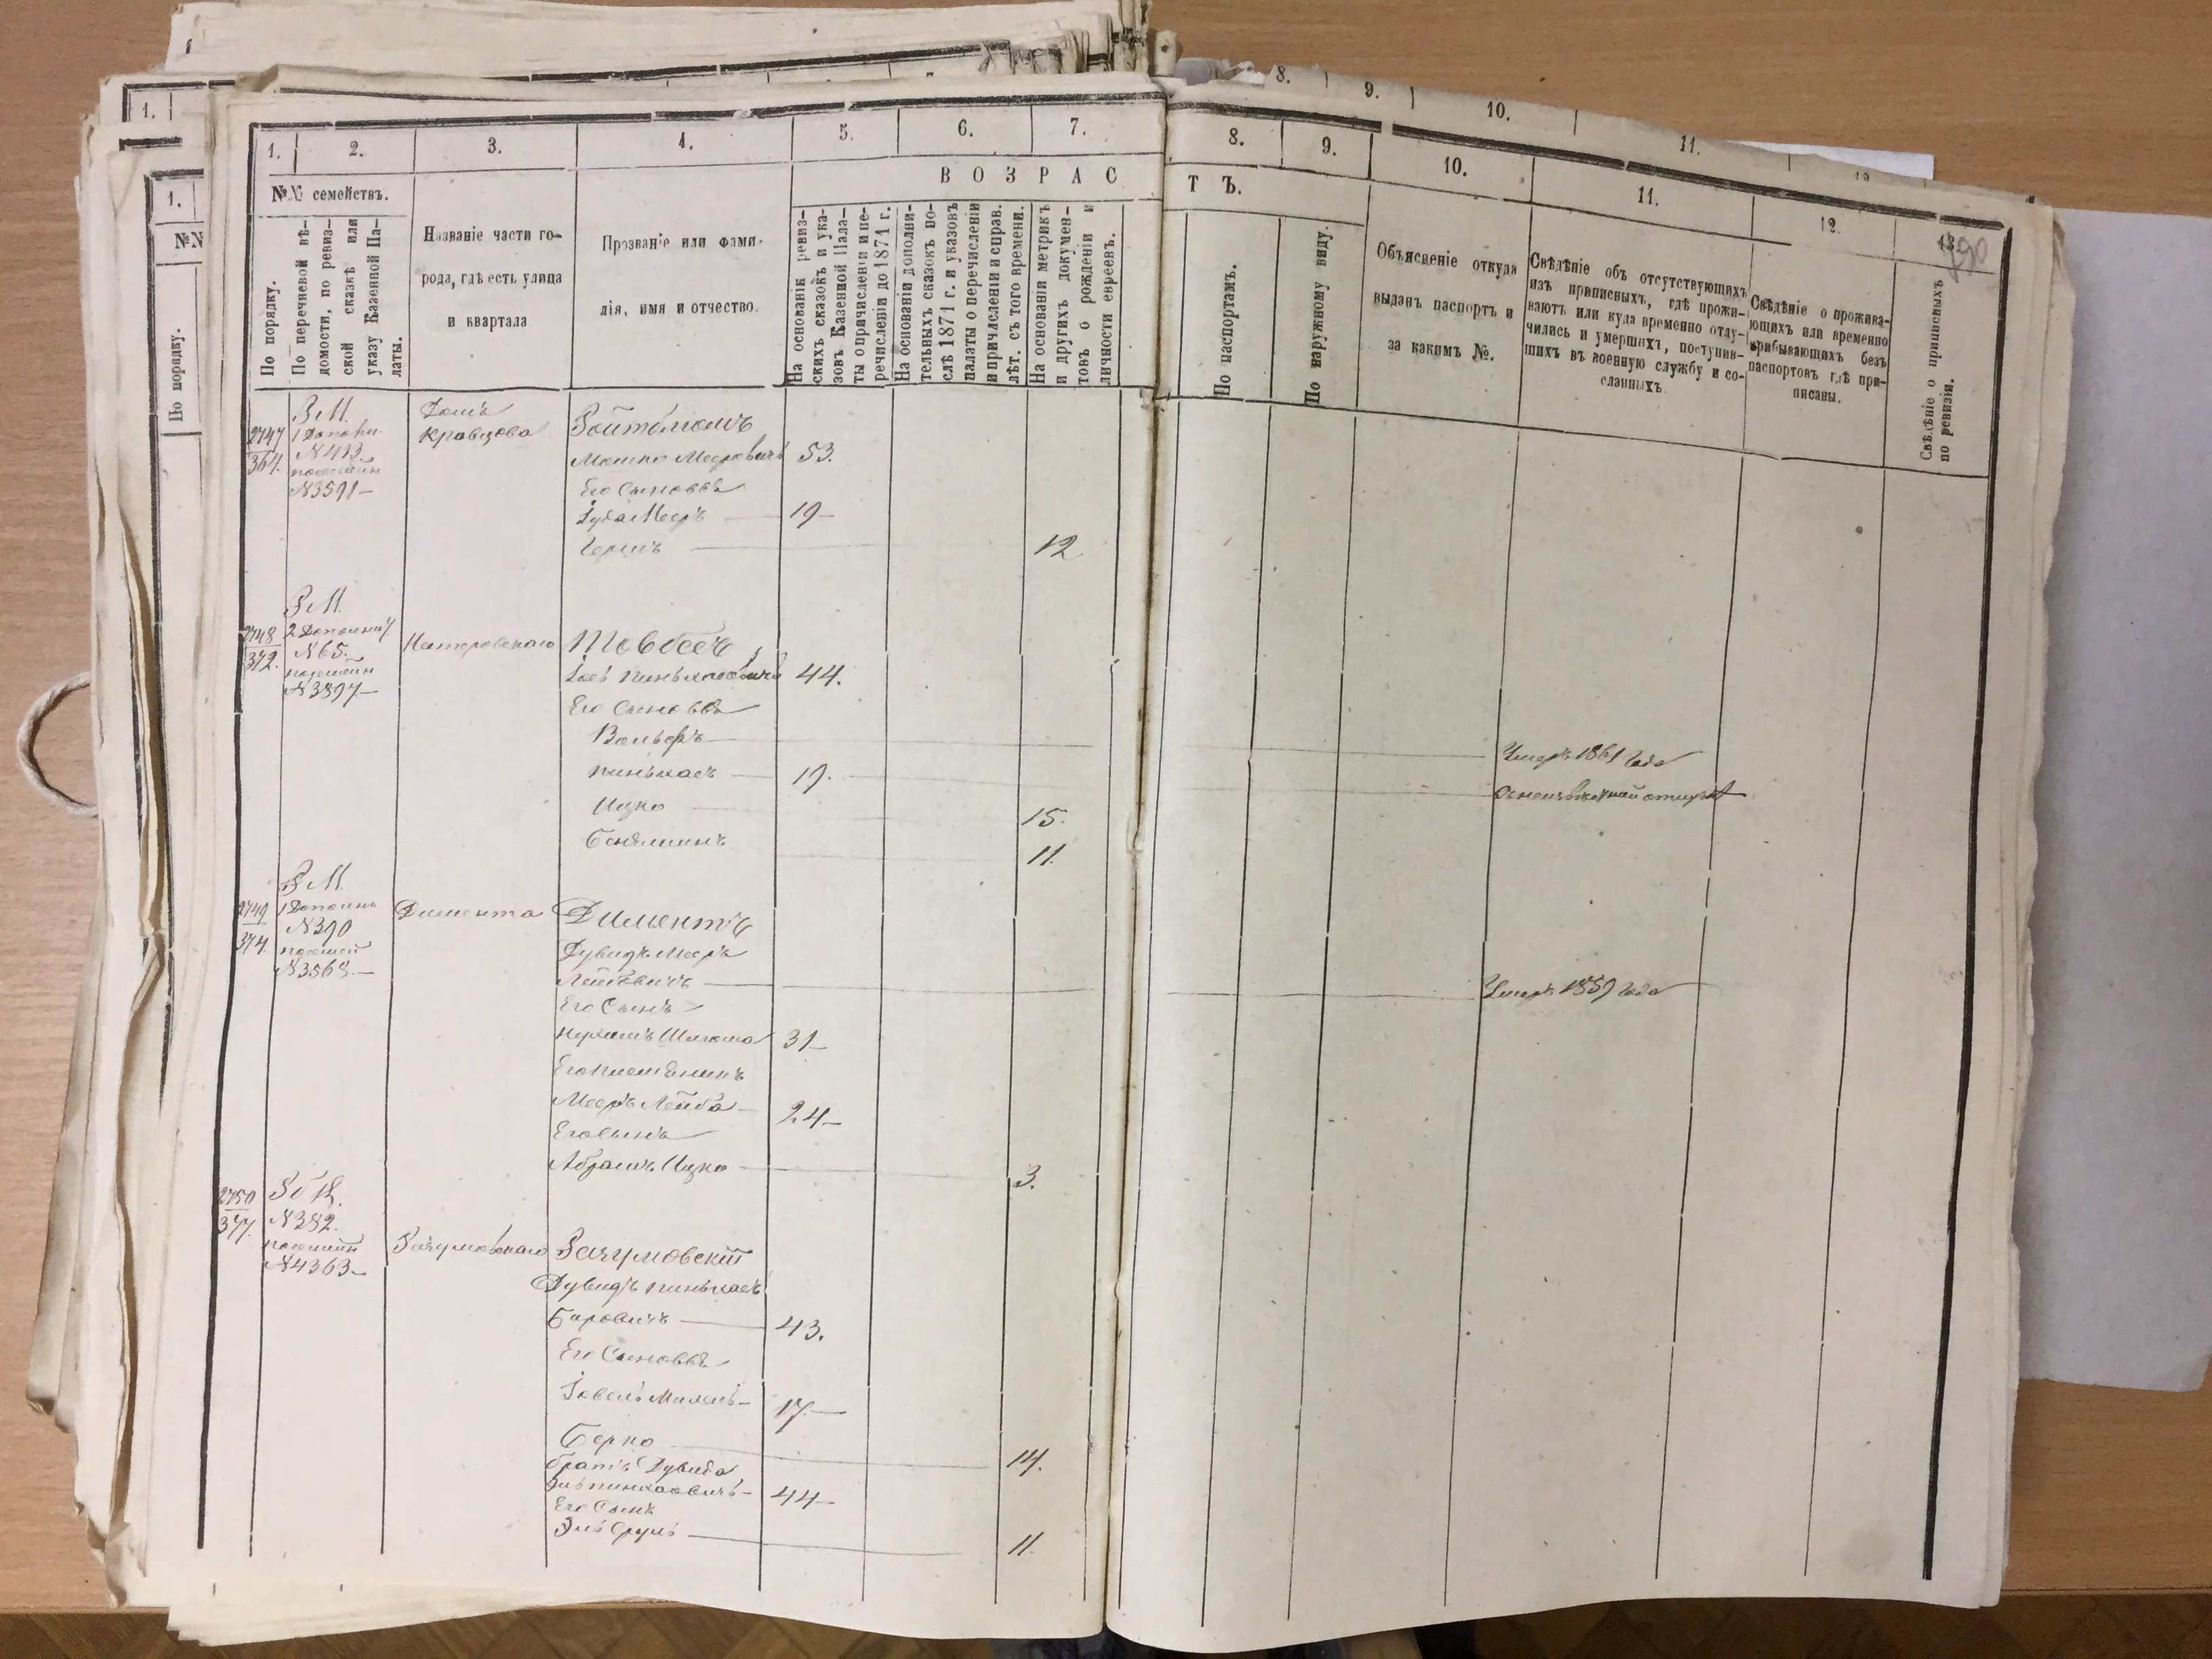 1.
1.
№№
По порядку.
8.
9.
10.
11.
12
1.
2.
3.
4.
5.
6.
7.
8.
9.
10.
11.
12.
13.
790
№№ семействъ.
В О З Р А С
Т Ъ.
По порядку.
По перечневой вѣ-
домости, по ревиз-
ской сказкѣ или
указу Казенной Па-
латы.
Названіе части го-
рода, гдѣ есть улица
и квартала
Прозваніе или фами-
лія, имя и отчество.
На основаніи ревиз-
скихъ сказокъ и ука-
зовъ Казенной Пала-
ты о причисленіи и пе-
речисленіи до 1871 г.
На основаніи дополни-
тельныхъ сказокъ по-
слѣ 1871 г. и указовъ
палаты о перечисленіи
и причисленіи и справ.
лѣт. съ того времени.
На основаніи метрикъ
и другихъ докумен-
товъ о рожденіи и
личности евреевъ.
По паспортамъ.
По наружному виду.
Объясненіе откуда
выданъ паспортъ и
за какимъ №.
Свѣдѣніе объ отсутствующихъ
изъ приписныхъ, гдѣ прожи-
ваютъ или куда временно отлу-
чились и умершихъ, поступив-
шихъ въ военную службу и со-
сланныхъ.
Свѣдѣніе о прожива-
ющихъ или временно
прибывающихъ безъ
паспортовъ гдѣ при-
писаны.
Свѣдѣніе о приписныхъ
по ревизіи.
2747
364.
N 413
N 3591
Домъ
Кравцова
Мошко Мееровичъ 53.
Его Сыновья
Дуда Мееръ 19
Гершъ 12
2748
372.
N 65.
N 3897
Нестеровскаго
Товбесъ
Пиньхасовичъ 44.
Его Сыновья
Вольфъ Умеръ 1861 года
Пиньхасъ 19.
Ицко 15.
Беніаминъ 11.
2749
374.
N 390
N 3568
Димента
Диментъ
Дувидъ Мееръ
Лейбовичъ Умеръ 1859 года
Его Сынъ
Нухимъ Шлома 31
Его племянникъ
Мееръ Лейба 24
Его сынъ
Абрамъ Ицко 3.
2750
377.
N 382.
N 4363
Разумовскаго Разумовскій
Дувидъ Пиньхасъ
Боровичъ 43.
Его Сыновья
17
Берко 14.
братъ Дувида
Пинхасовичъ 44
Его Сынъ
Эль Сруль 11.